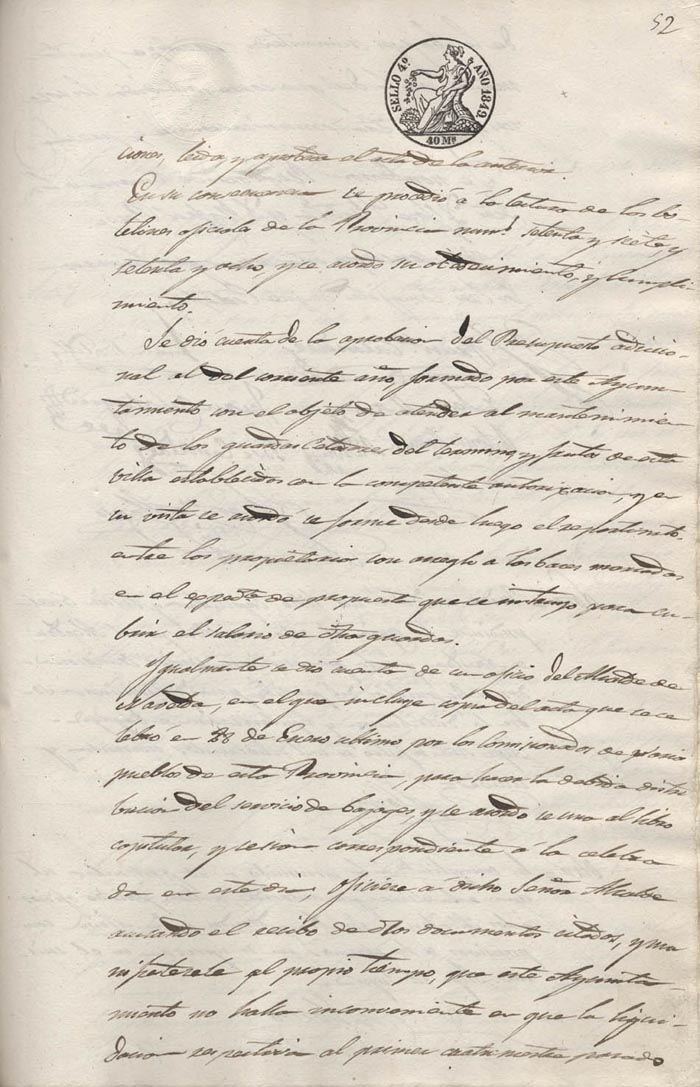 52
SELLO 4º AÑO 1849
40 Ms
ciones, leida y aprobada el acta de la anterior.
En su consecuencia se procedió á la lectura de los bo-
letines oficiales de la Provincia num.s setenta y siete, y
setenta y ocho, y se acordó su obedecimiento, y cumpli-
miento.
Se dió cuenta de la aprobacion del Presupuesto adicio-
nal al del corriente año formado por este Ayun-
tamiento con el objeto de atender al mantenimien-
to de los guardas celadores del termino y frutos de esta
villa establecidos con la competente autorizacion, y en
su vista se acordó se forme desde luego el repartimto
entre los propietarios con arreglo a las bases marcadas
en el expedte de propuesta que se instruyó para cu-
brir el salario de dhos guardas.
Igualmente se dió cuenta de un oficio del Alcalde de
en el que incluye copia del acta que se ce-
lebró en 28 de Enero ultimo por los Comisionados de varios
pueblos de esta Provincia, para hacer la debida distri-
bucion del servicio de bagajes, y se acordó se una al libro
capitular, y sesion correspondiente á la celebra-
da en este dia, oficiese á dicho Señor Alcalde
acusando el recibo de dhos documentos citados, y ma-
nifestarle al propio tiempo, que este Ayunta-
miento no halla inconveniente en que la liqui-
dacion respectiva al primer cuatrimestre pasado